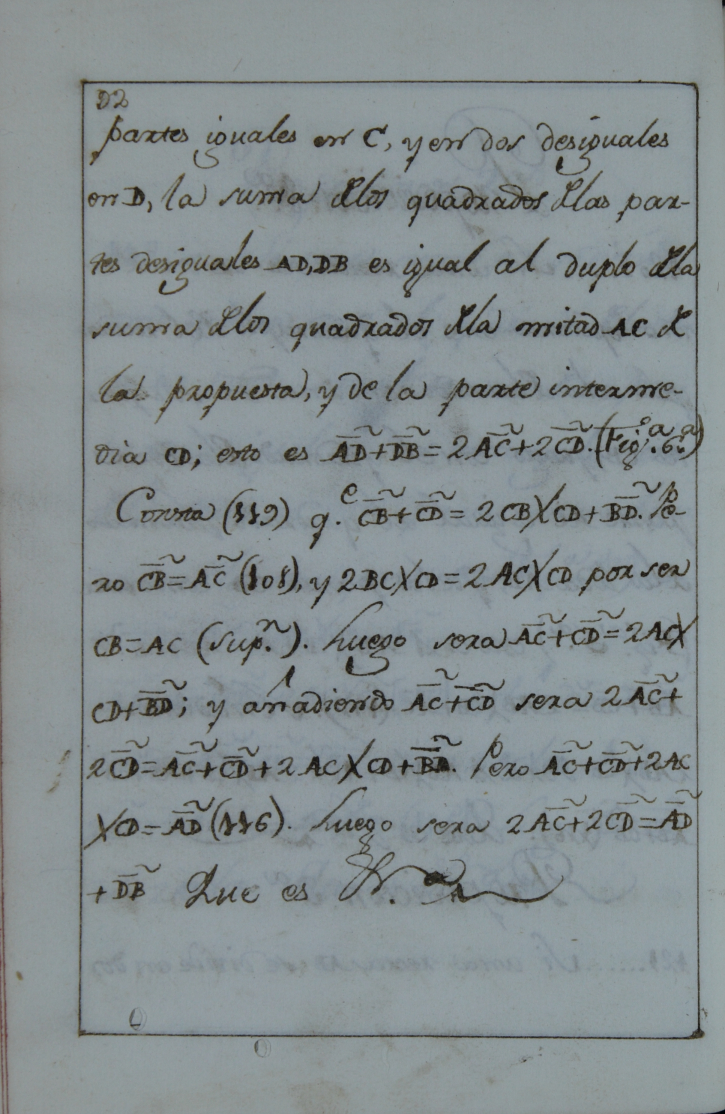 92
partes iguales en C, y en dos desiguales
en D, la suma dlos quadrados dlas par-
tes desiguales AD, DB es igual al duplo dla
suma dlos quadrados dla mitad AC d
la propuesta, y de la parte interme-
dia CD; esto es A̅D̅~+D̅B̅~=2A̅C̅~+2C̅D̅~. (Fig.ª 6.ª)
Consta (119) q.e C̅B̅~+C̅D̅~=2CB╳CD+B̅D̅~. Pe-
ro C̅B̅~=A̅C̅~ (101), y 2BC╳CD=2AC╳CD por ser
CB=AC (sup.n). Luego sera A̅C̅~+C̅D̅~=2AC╳
CD+B̅D̅~; y añadiendo A̅C̅~+C̅D̅~ sera 2A̅C̅~+
2C̅D̅~=A̅C̅~+C̅D̅~+2AC╳CD+B̅D̅~. Pero A̅C̅~+C̅D̅~+2AC
╳CD=A̅D̅~ (116). Luego sera 2A̅C̅~+2C̅D̅~=A̅D̅~
+D̅B̅~ Que es